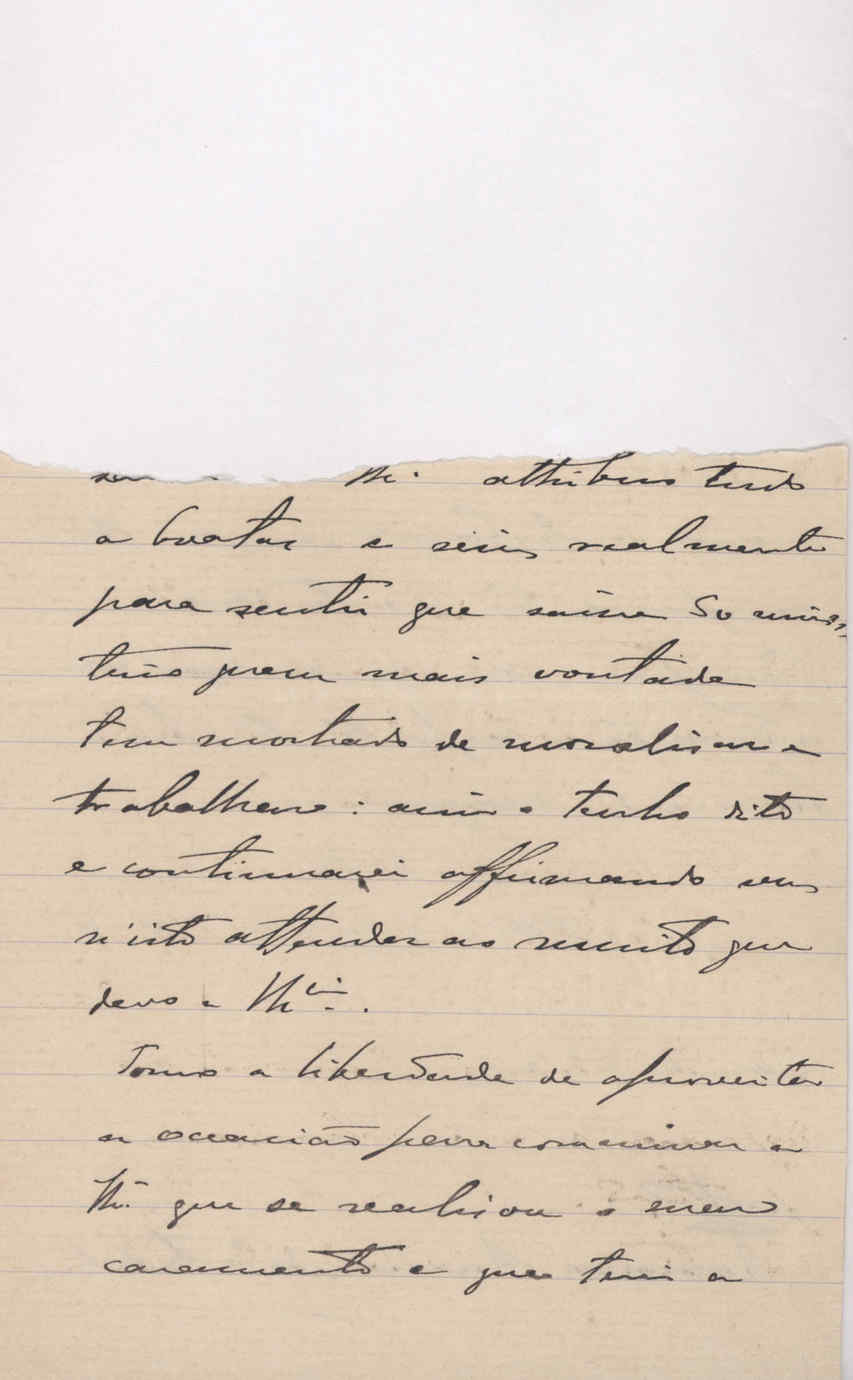 attribuindo
a boatos e
para sentir que
quem mais vontade
tem mostrado de moralisar e
trabalhar: assim o tenho dito
e continuarei affirmando sem
n'isto attender ao muito que
devo a
Tomo a liberdade de aproveitar
a occasião para communicar a
que se realisou o meu
casamento e que terei a